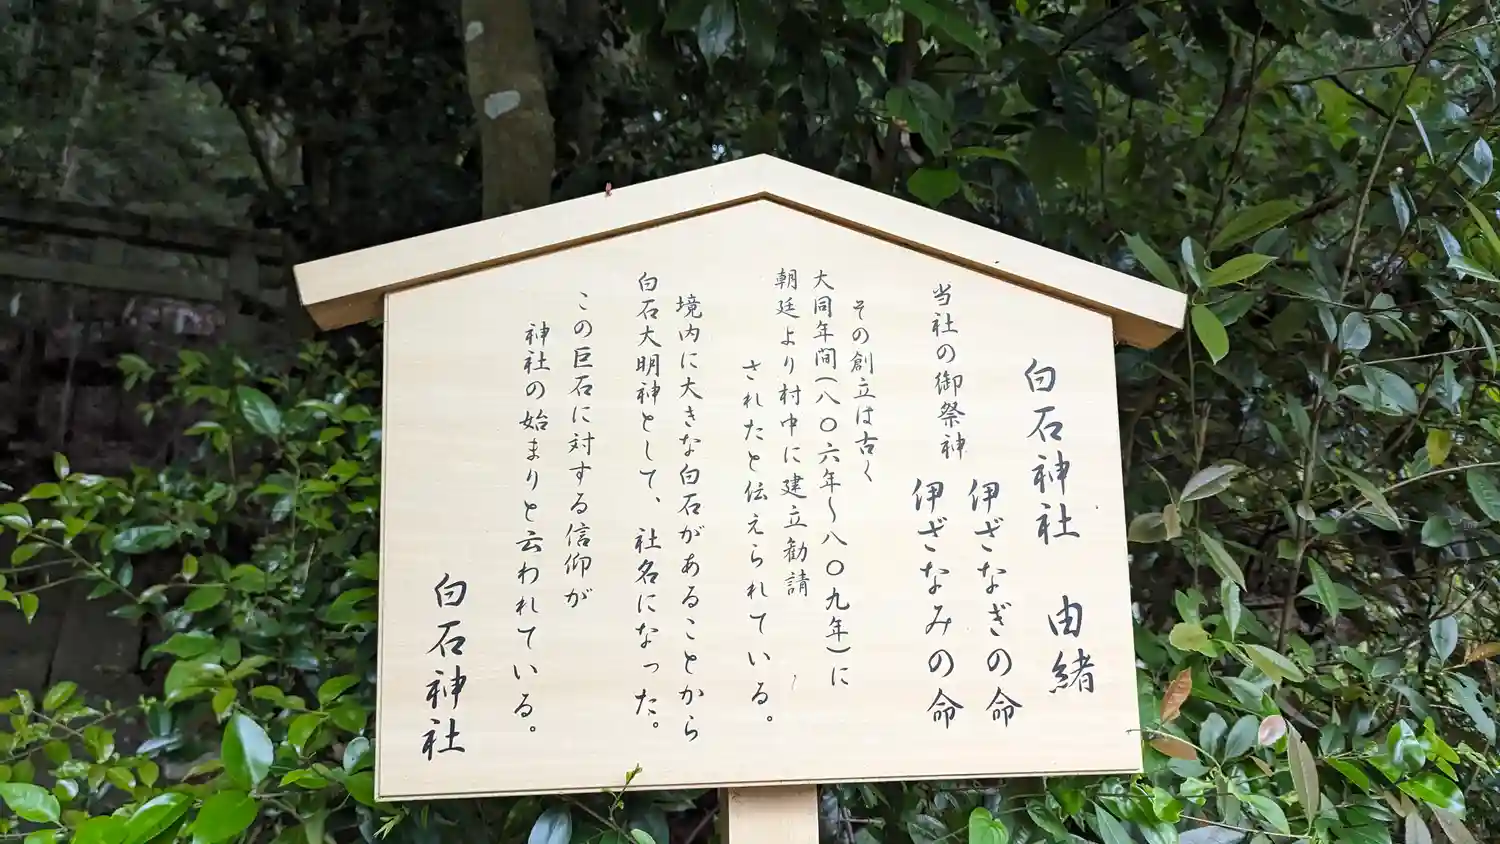 白石神社 由緒
当社の御祭神 伊ざなぎの命
伊ざなみの命
その創立は古く
大同年間(八〇六年~八〇九年)に
朝廷より村中に建立勧請
されたと伝えられている。
境内に大きな白石があることから
白石大明神として、社名になった。
この巨石に対する信仰が
神社の始まりと云われている。
白石神社